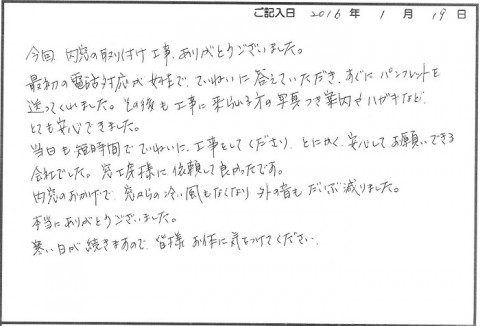 ご記入日 2016年 1月 19日
今回、内窓の取り付け工事、ありがとうございました。
最初の電話対応が女性で、ていねいに答えていただき、すぐにパンフレットを
送ってくれました。その後も工事に来られる方の写真つき案内やハガキなど、
とても安心できました。
当日も短時間でていねいに、工事をしてくださり、とにかく、安心してお願いできる
会社でした。窓工房様に依頼して良かったです。
内窓のおかげで、窓からの冷い風もなくなり 外の音も だいぶ減りました。
本当にありがとうございました。
寒い日が続きますので、皆様 お体に気をつけてください。